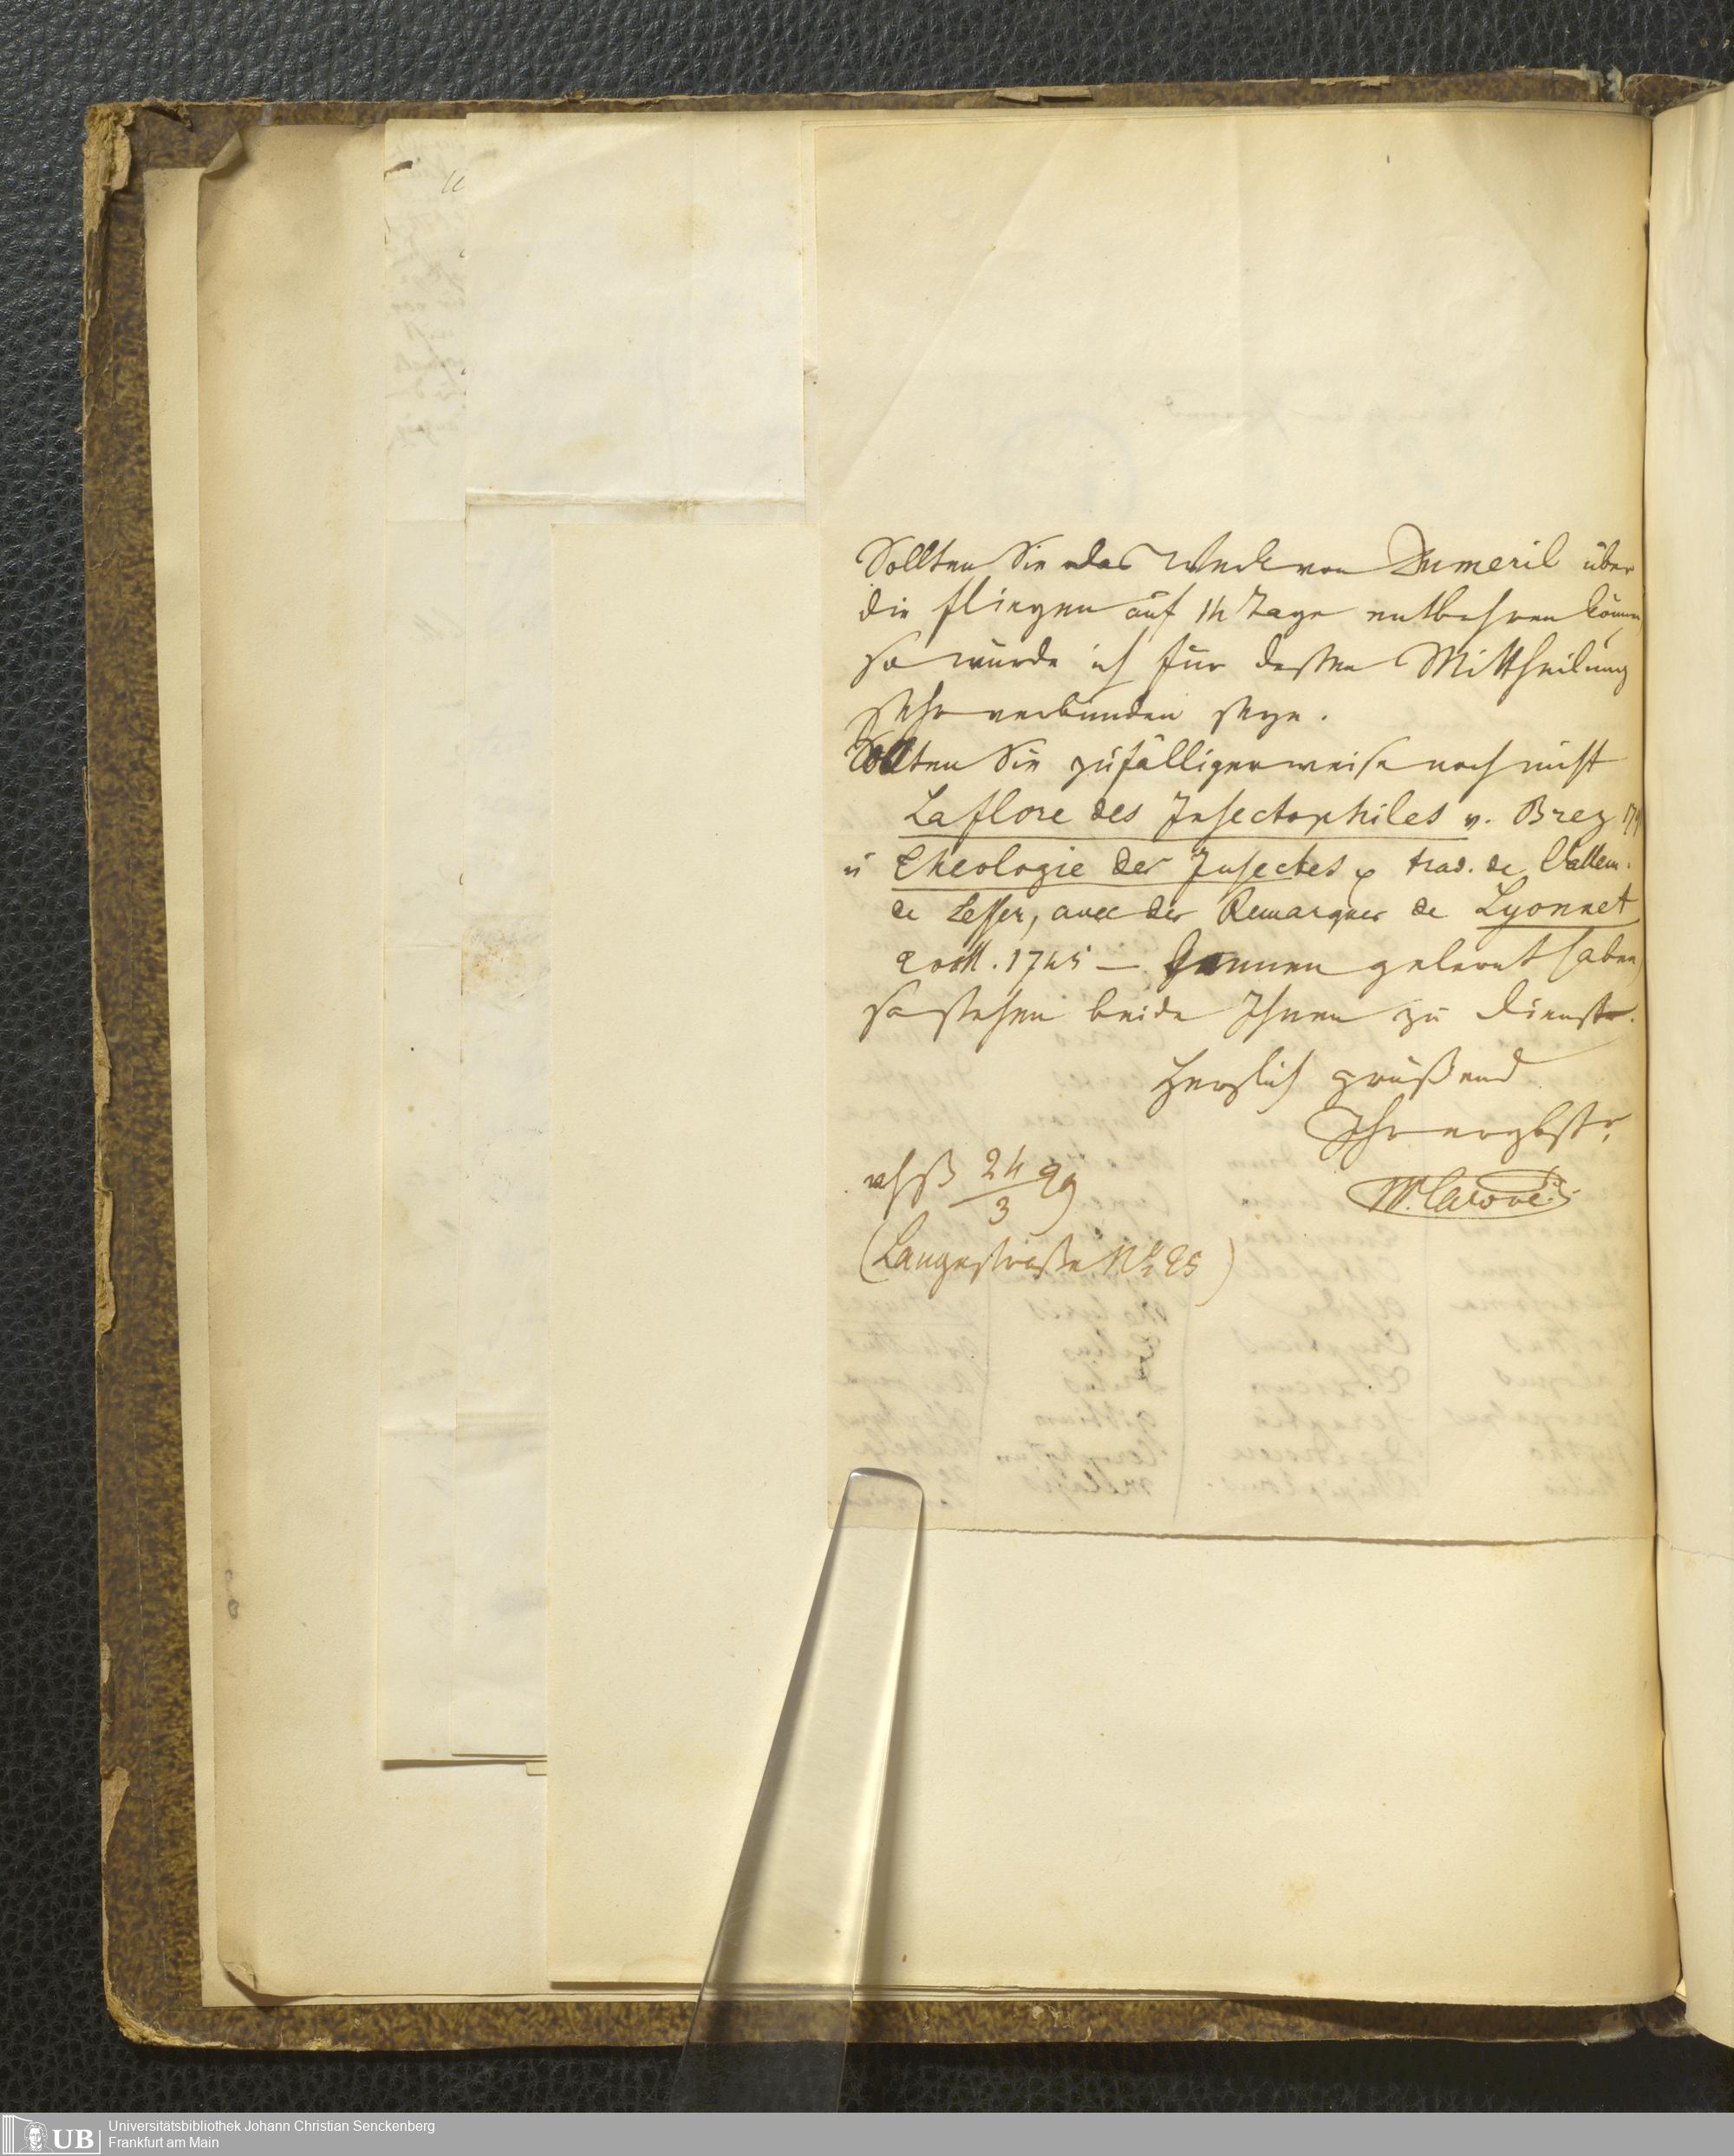 Sollten Sie das Werk von Dumeril über
die Fliegen auf 14 Tage entbehren können
so würde ich für dessen Mittheilung
sehr verbunden seyn.
Sollten Sie zufälligerweise noch nicht
La flore des Insectophiles v. Brez 179
u Theologie des Insectes trad. de l'allem.
de Lesser, avec des Remarques de Lyonnet
2 voll. 1745 — kennen gelernt haben,
so stehen beide Ihnen zu Dienst.
Herzlich grüßend
Ihr ergbstr,
24/3 29
W. Carové
(Langestraße No 25)
UB
Universitätsbibliothek Johann Christian Senckenberg
Frankfurt am Main